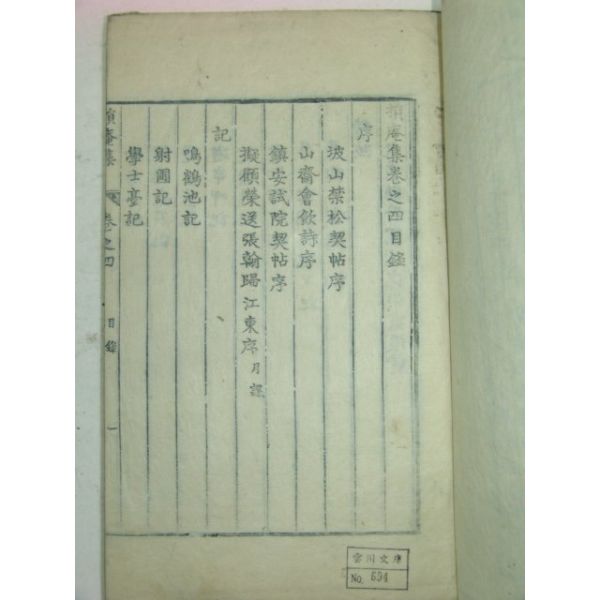 順庵集卷之四目錄
序
波山禁松契帖序
山齋會飲詩序
鎭安試院契帖序
擬顧榮送張翰歸江東序 月課
記
鳴鶴池記
射圃記
學士臺記
庵集 卷之四 目錄 一
雲川文庫
No. 694